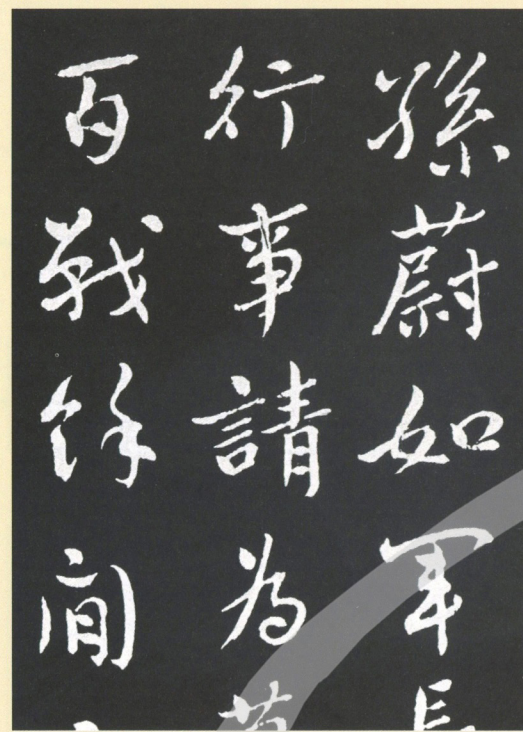 孫蔚如軍長
行事請為
百戰餘間